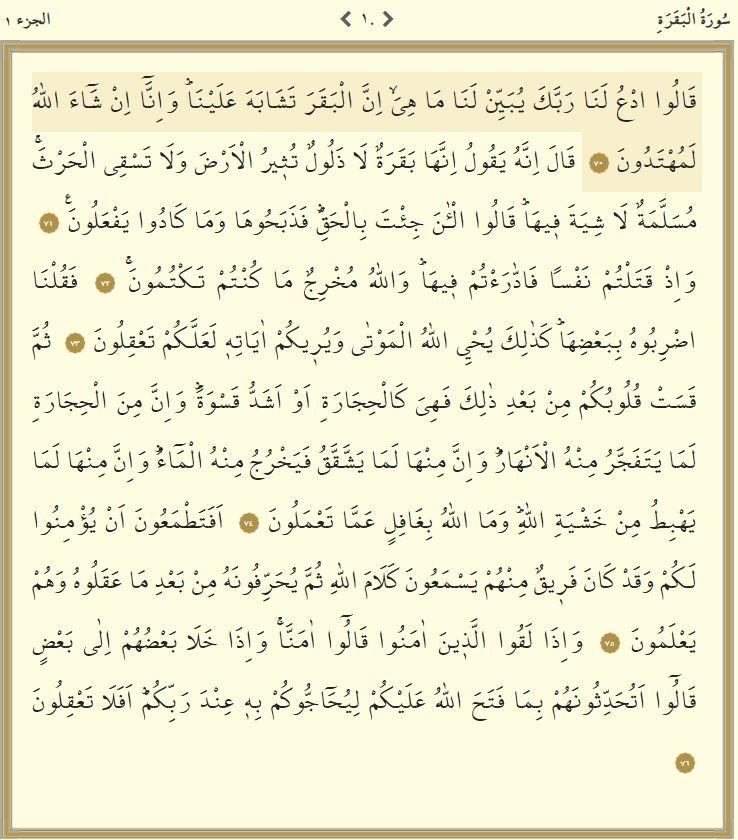 سُورَةُ الْبَقَرَةِ ١٠ الجزء ١
قَالُوا ادْعُ لَنَا رَبَّكَ يُبَيِّنْ لَنَا مَا هِيَۙ اِنَّ الْبَقَرَ تَشَابَهَ عَلَيْنَاۜ وَاِنَّٓا اِنْ شَٓاءَ اللّٰهُ
لَمُهْتَدُونَ ٧٠ قَالَ اِنَّهُ يَقُولُ اِنَّهَا بَقَرَةٌ لَا ذَلُولٌ تُث۪يرُ الْاَرْضَ وَلَا تَسْقِي الْحَرْثَۚ
مُسَلَّمَةٌ لَا شِيَةَ ف۪يهَاۜ قَالُوا الْـٰٔنَ جِئْتَ بِالْحَقِّۜ فَذَبَحُوهَا وَمَا كَادُوا يَفْعَلُونَ۟ ٧١
وَاِذْ قَتَلْتُمْ نَفْسًا فَادّٰرَءْتُمْ ف۪يهَاۜ وَاللّٰهُ مُخْرِجٌ مَا كُنْتُمْ تَكْتُمُونَۚ ٧٢ فَقُلْنَا
اضْرِبُوهُ بِبَعْضِهَاۜ كَذٰلِكَ يُحْيِ اللّٰهُ الْمَوْتٰى وَيُر۪يكُمْ اٰيَاتِه۪ لَعَلَّكُمْ تَعْقِلُونَ ٧٣ ثُمَّ
قَسَتْ قُلُوبُكُمْ مِنْ بَعْدِ ذٰلِكَ فَهِيَ كَالْحِجَارَةِ اَوْ اَشَدُّ قَسْوَةًۜ وَاِنَّ مِنَ الْحِجَارَةِ
لَمَا يَتَفَجَّرُ مِنْهُ الْاَنْهَارُۜ وَاِنَّ مِنْهَا لَمَا يَشَّقَّقُ فَيَخْرُجُ مِنْهُ الْمَٓاءُۜ وَاِنَّ مِنْهَا لَمَا
يَهْبِطُ مِنْ خَشْيَةِ اللّٰهِۜ وَمَا اللّٰهُ بِغَافِلٍ عَمَّا تَعْمَلُونَ ٧٤ اَفَتَطْمَعُونَ اَنْ يُؤْمِنُوا
لَكُمْ وَقَدْ كَانَ فَر۪يقٌ مِنْهُمْ يَسْمَعُونَ كَلَامَ اللّٰهِ ثُمَّ يُحَرِّفُونَهُ مِنْ بَعْدِ مَا عَقَلُوهُ وَهُمْ
يَعْلَمُونَ ٧٥ وَاِذَا لَقُوا الَّذ۪ينَ اٰمَنُوا قَالُٓوا اٰمَنَّاۚ وَاِذَا خَلَا بَعْضُهُمْ اِلٰى بَعْضٍ
قَالُٓوا اَتُحَدِّثُونَهُمْ بِمَا فَتَحَ اللّٰهُ عَلَيْكُمْ لِيُحَٓاجُّوكُمْ بِه۪ عِنْدَ رَبِّكُمْۜ اَفَلَا تَعْقِلُونَ
٧٦